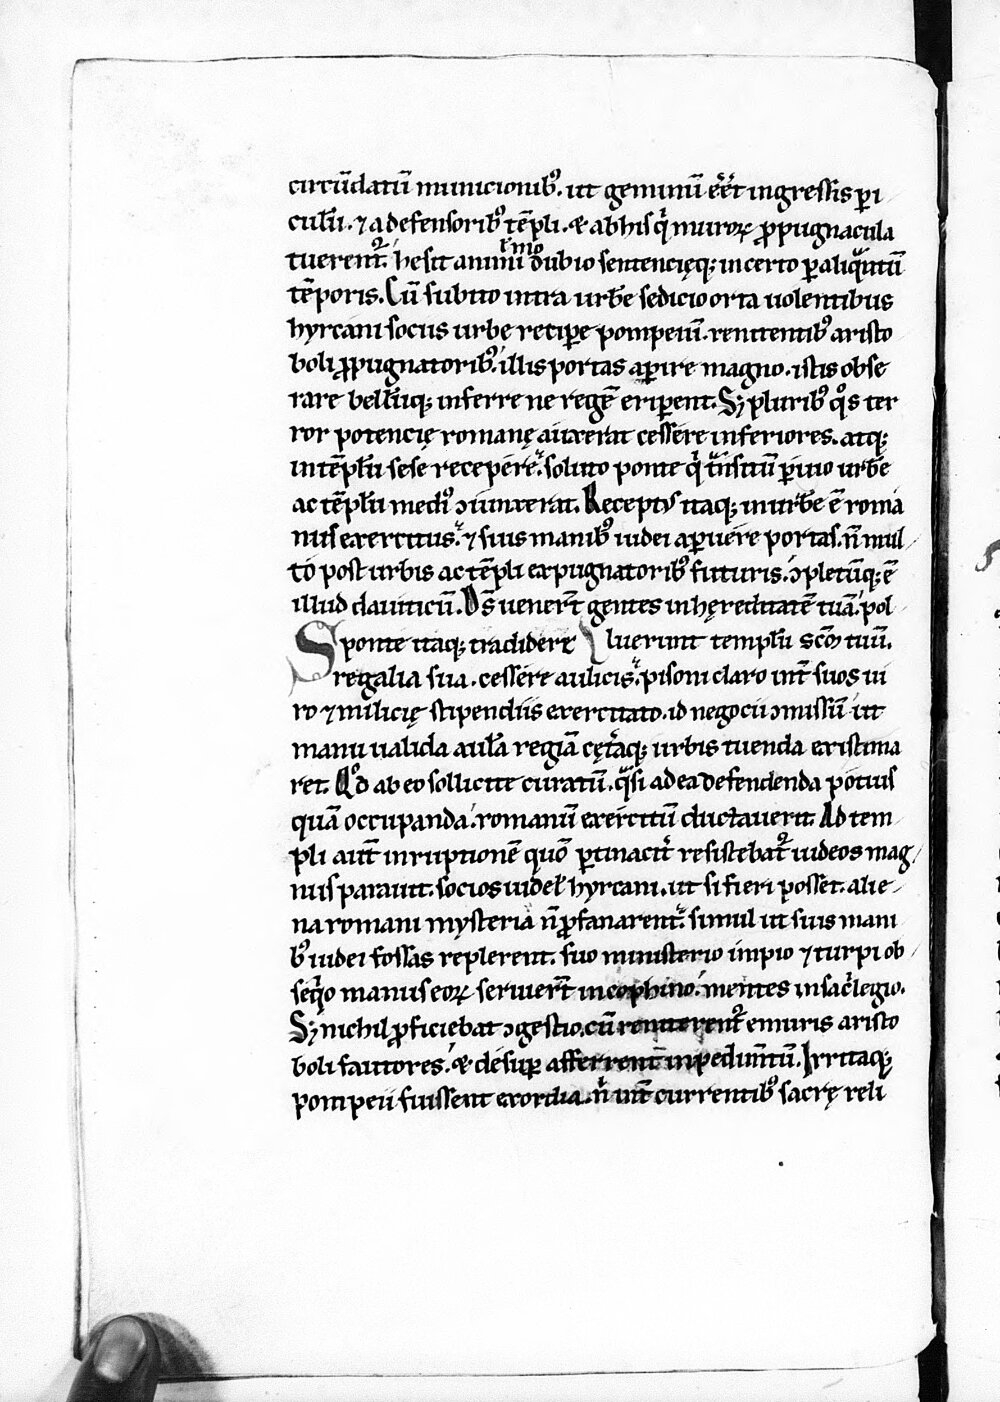 circūdatū municionib᷒. ut geminū eēt ingressis ꝑi
culū. ⁊ a defensorib᷒ tēpli. & ab his q̇ muroꝝ ꝓpugnacula
tuerent᷑. hesit animi dubio sentencięq; incerto ꝑ aliquātū
fimo
tēporis. Cū subito intra urbē sedicio orta uolentibus
hyrcani sociis urbe recipe pompeiū. renitentib᷒ aristo
boli ꝓpugnatorib᷒. illis portas aꝑire magno. istis obse
rare bellūq; inferre ne regē eriꝑent. S; plurib᷒ q̊s ter
ror potencię romanę auxerat cessere inferiores. atq;
in tēplū sese recepere. soluto ponte q̇ trāsitū ꝑuio urbē
ac tēplū medi᷒ ↄiunxerat. Recept᷒ itaq; in urbē ē roma
nus exercitus. ⁊ suis manib᷒ iudei aꝑuere portas. n̄ mul
to post urbis ac tēpli expugnatorib᷒ futuris. ↄpletūq; ē
illud dauiticū. Ds̄ uener̄t gentes in hęreditatē tuā. pol
Sponte itaq; tradidere luerunt templū scm̄ tuū.
regalia sua. cessere aulicis. pisoni claro int̄ suos ui
ro ⁊ milicię stipendiis exercitato. id negocii ↄmissū ut
manu ualida aulā regiā cęt̄aq; urbis tuenda existima
ret. Qd̊ ab eo sollicite curatū. quāsi ad ea defendenda potius
quā occupanda. romanū exercitū ductauerit. Ad tem
pli aut̄ inruptionē quō ꝑtinacit̄ resistebat᷑ iudeos mag
nus parauit. socios uidel̄ hyrcani. ut si fieri posset. alie
na romani mysteria n̄ ꝓfanarent᷑. simul ut suis mani
b᷒ iudei fossas replerent. suo ministerio impio ⁊ turpi ob
seq̇o manus eoꝝ seruier̄t in cophino. mentes in sac̄legio.
S; nichil ꝓficiebat ↄgestio. cū reniterent᷑ e muris aristo
boli fautores. & desuꝑ afferrent inpedimt̄ū. Irritaq;
pompeii fuissent exordia. n̄ int̄ currentib᷒ sacrę reli